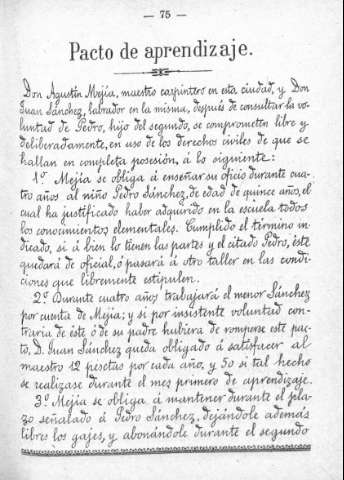 — 75 —
Pacto de aprendizaje.
Don Agustín Mejía, maestro carpintero en esta ciudad, y Don
Juan Sánchez, labrador en la misma, después de consultar la vo-
luntad de Pedro, hijo del segundo, se comprometen libre y
deliberadamente, en uso de los derechos civiles de que se
hallan en completa posesión, á lo siguiente:
1.º Mejía se obliga á enseñar su oficio durante cua-
tro años al niño Pedro Sánchez, de edad de quince años, el
cual ha justificado haber adquirido en la escuela todos
los conocimientos elementales. Cumplido el término in-
dicado, si á bien lo tienen las partes y el citado Pedro, éste
quedará de oficial, ó pasará á otro taller en las condi-
ciones que libremente estipulen.
2.º Durante cuatro años trabajará el menor Sánchez
por cuenta de Mejía; y si por insistente voluntad con-
traria de éste ó de su padre hubiera de romperse este pac-
to, D. Juan Sánchez queda obligado á satisfacer al
maestro 12 pesetas por cada año, y 50 si tal hecho
se realizase durante el mes primero de aprendizaje.
3.º Mejía se obliga á mantener durante el pla-
zo señalado á Pedro Sánchez, dejándole además
libres los gajes, y abonándole durante el segundo